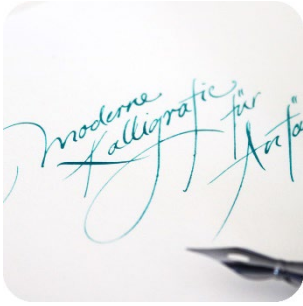 Moderne
Kalligrafie für